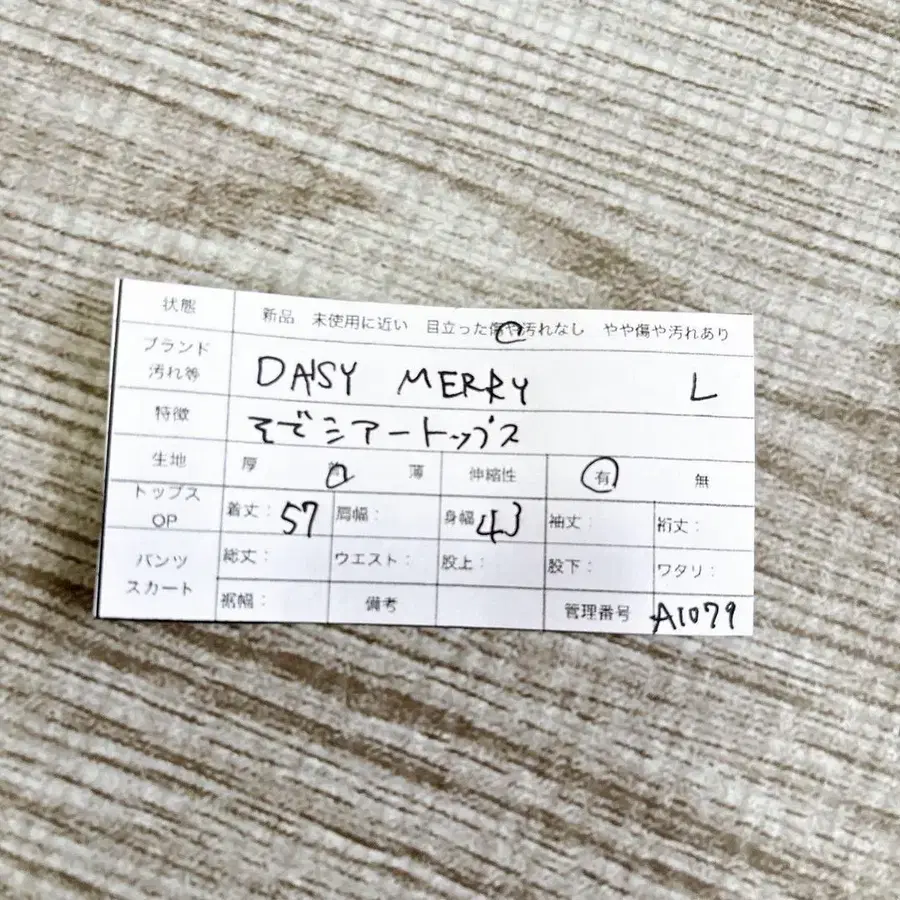 状態 新品 未使用に近い 目立った傷や汚れなし やや傷や汚れあり
ブランド 汚れ等 DAISY MERRY L
特徴 そでシアートップス
生地 厚 薄 伸縮性 有 無
トップス OP 着丈: 57 肩幅: 身幅 43 袖丈: 裄丈:
パンツ スカート 総丈: ウエスト: 股上: 股下: ワタリ:
裾幅: 備考 管理番号 A1079